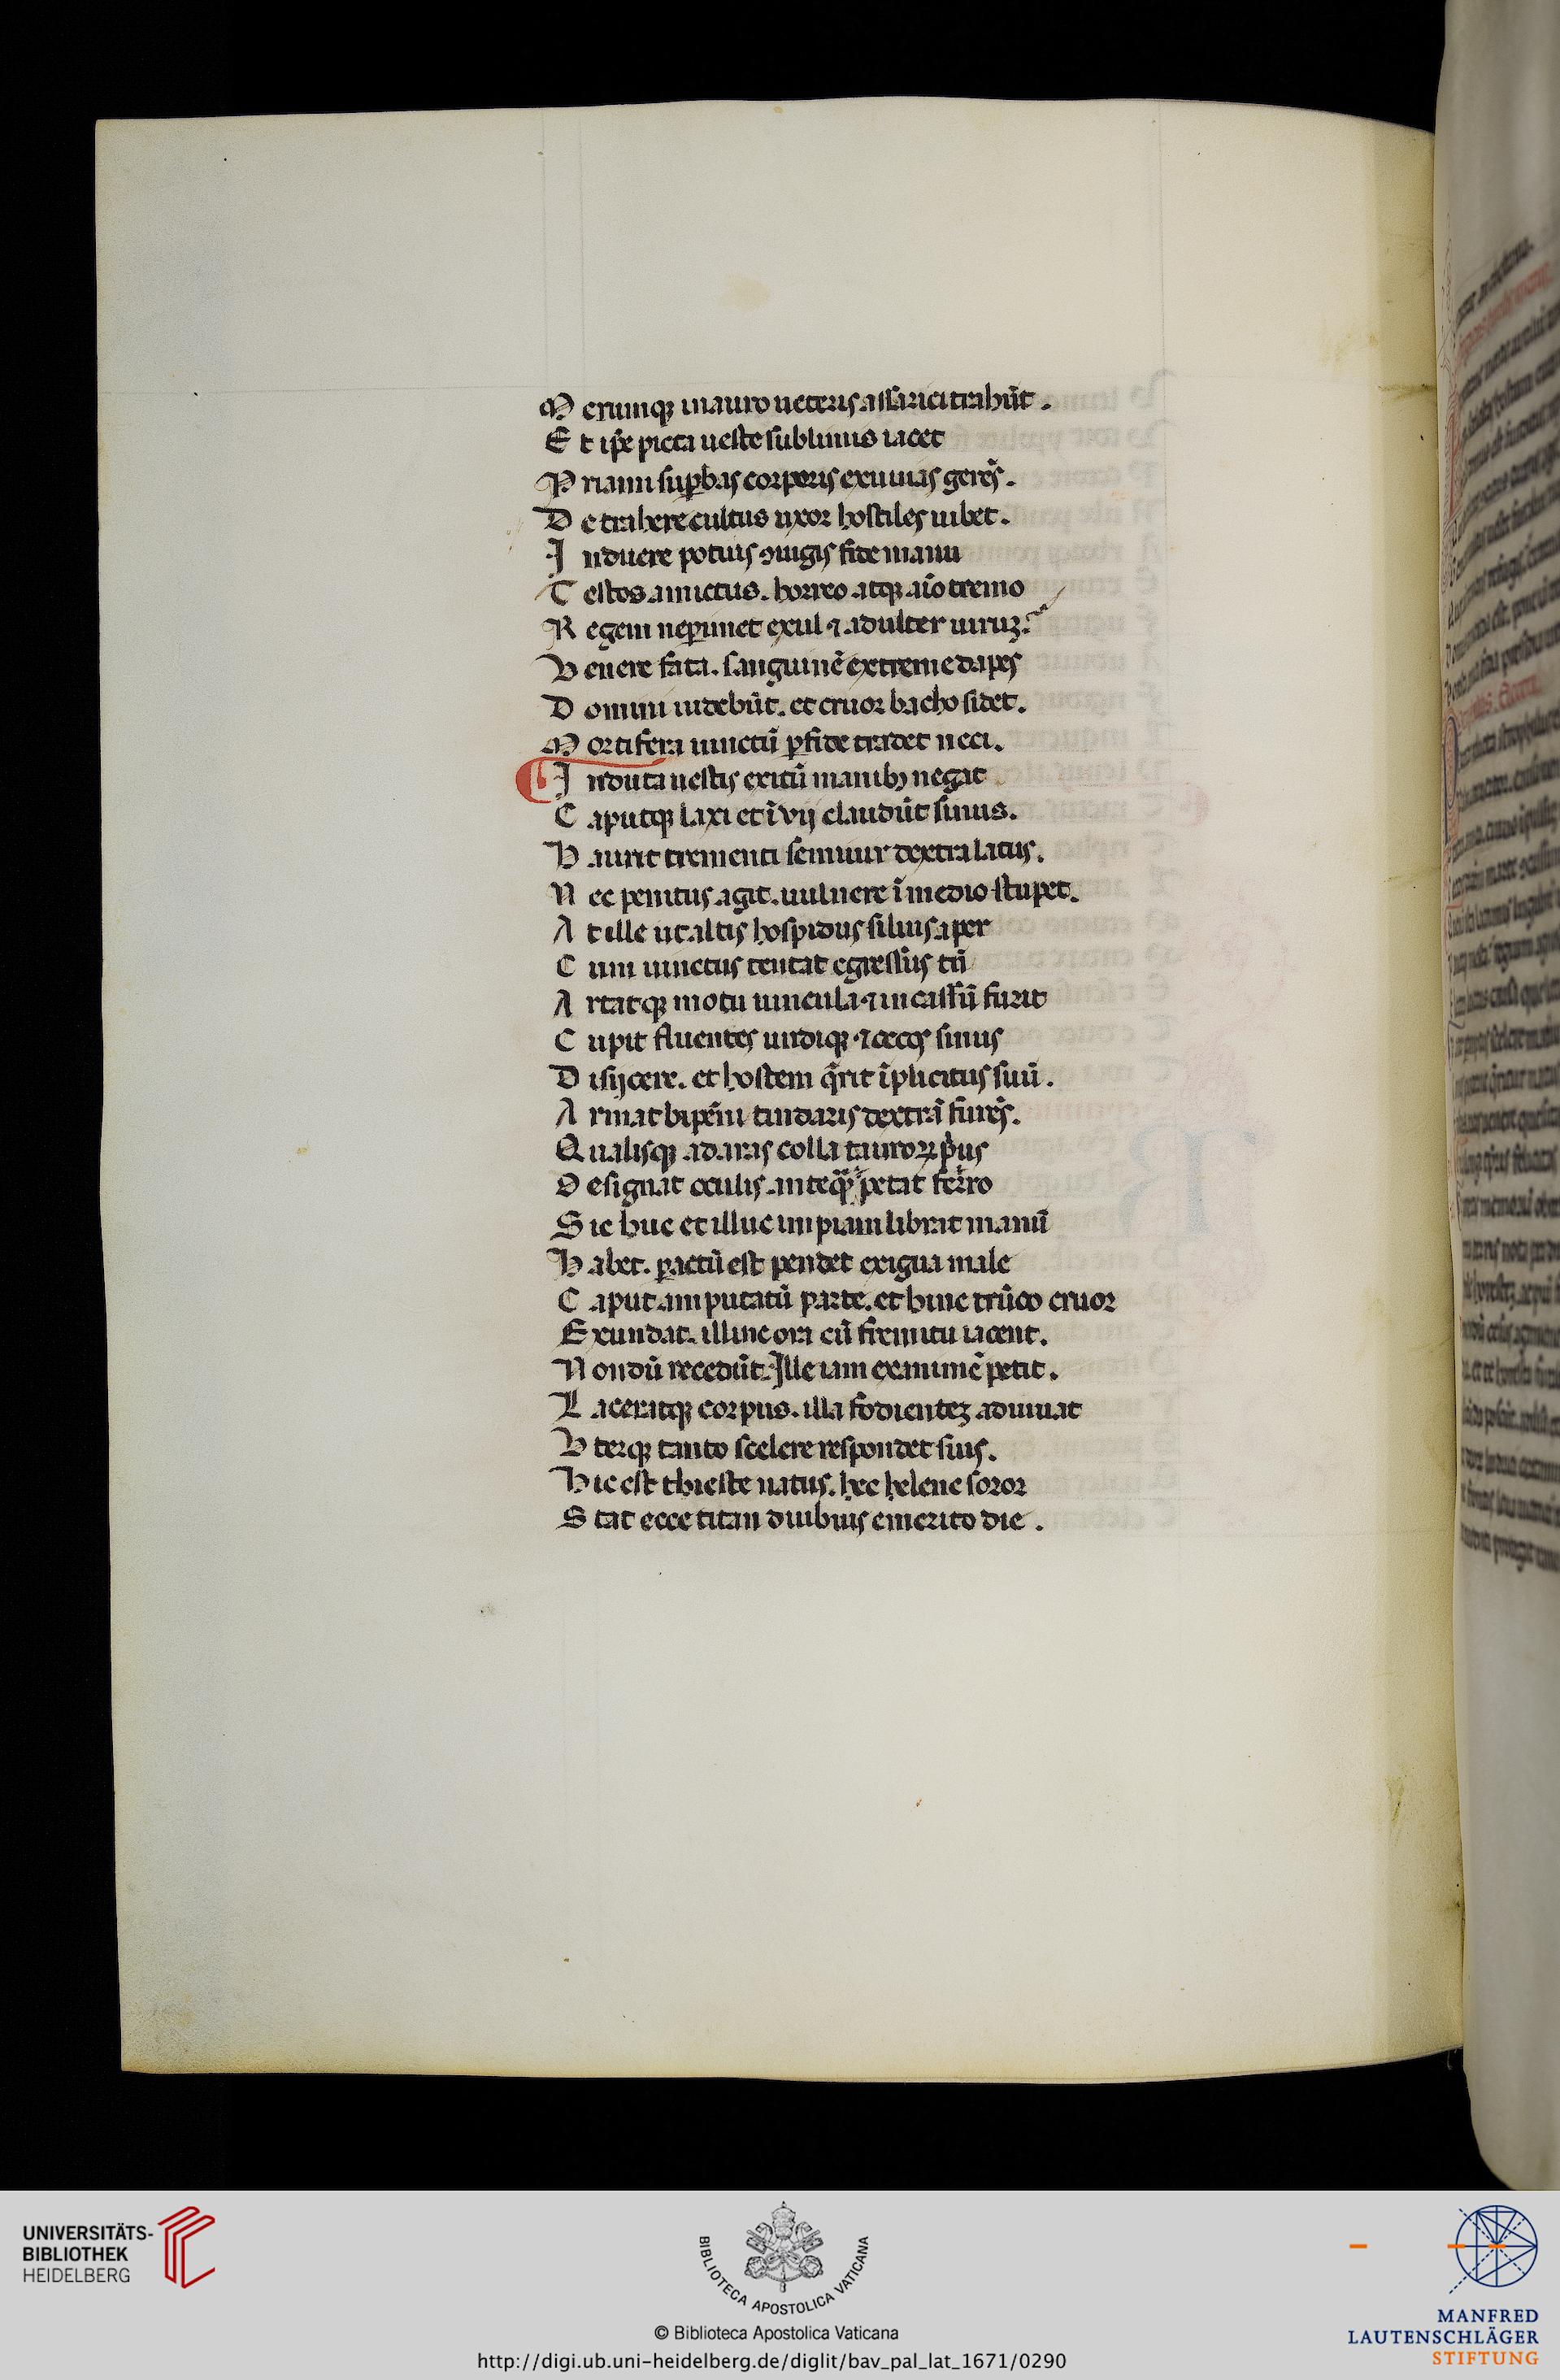 M erumq; in auro ueteris assarici trahūt .
E t ip̄e picta ueste sublimis iacet
P riami sup̱bas corporis exuuias gerēs .
D e trahere cultus uxor hostiles iubet .
I nduere potius ꝯiugis fide manu
T estos amictus . horreo atq; aīo tremo
R egem ne p̱imet exul ⁊ adulter uiruꝫ .
V enere fata . sanguinē extreme dapes
D omini uidebūt . et cruor bacho sidet .
M ortifera uinctū p̱fide tradet neci .
I nduta uestis exitū manibꝫ negat
C aputq; laxi et īvij claudūt sinus .
H aurit trementi semiuir dextra latus .
N ec penitus agit . uulnere ī medio stupet .
A t ille ut altis hospidus siluis aper
C um uinctus tentat egressus tn̄
A rtatq; motu uincula ⁊ in cassū furit
C upit fluentes undiq; ⁊ cecos sinus
D isijcere . et hostem q̄rit īplicitus suū .
A rmat bipēni tindaris dextrā furēs .
Q ualisq; ad aras colla tauroꝝ p̱us
D esignat oculis anteq̄ petat ferro
S ic huc et illuc impiam librat manū
H abet . p̱actū est pendet exigua male
C aput amputatū parte . et hinc trūco cruor
E xundat . illinc ora cū fremitu iacent .
N ondū recedūt . Ille iam exanimē petit .
L aceratq; corpus . illa fodienteꝫ adiuuat
V terq; tanto scelere respondet suis .
H ic est thieste natus . hec helene soror
S tat ecce titan dubius emerito die .
UNIVERSITÄTS-
BIBLIOTHEK
HEIDELBERG
BIBLIOTECA APOSTOLICA VATICANA
© Biblioteca Apostolica Vaticana
http://digi.ub.uni-heidelberg.de/diglit/bav_pal_lat_1671/0290
MANFRED
LAUTENSCHLÄGER
STIFTUNG